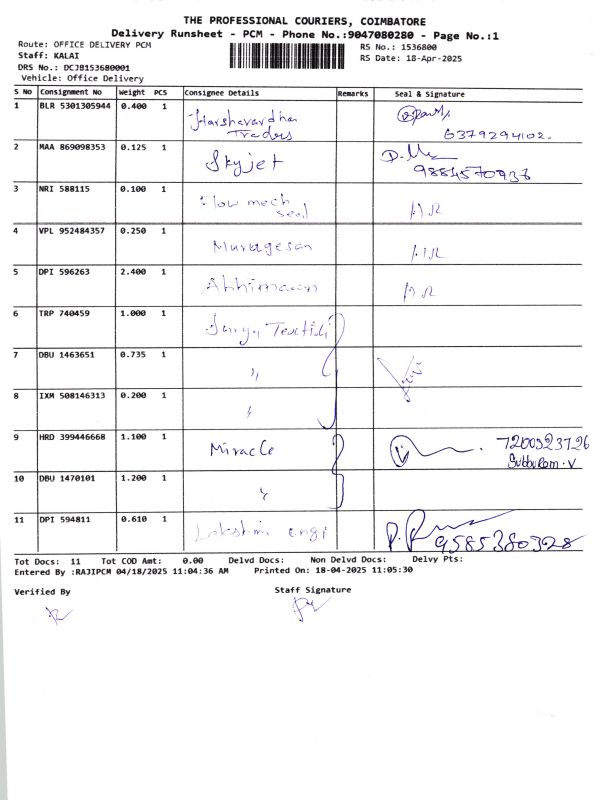 THE PROFESSIONAL COURIERS, COIMBATORE
Delivery Runsheet - PCM - Phone No.:9047080280 - Page No.:1
Route: OFFICE DELIVERY PCM
RS No.: 1536800
Staff: KALAI
RS Date: 18-Apr-2025
DRS No.: DCJB153680001
Vehicle: Office Delivery
S No Consignment No Weight PCS Consignee Details Remarks Seal & Signature
1 BLR 5301305944 0.400 1 Harshavardha
Traders 6379294102.
2 MAA 869098353 0.125 1 Skyjet D.
9884570937
3 NRI 588115 0.100 1 Flow mech
seal
4 VPL 952484357 0.250 1 Murugesan
5 DPI 596263 2.400 1
6 TRP 740459 1.000 1 Surya
7 DBU 1463651 0.735 1 "
8 IXM 508146313 0.200 1 "
9 HRD 399446668 1.100 1 Miracle 7200523726
Subburam.V
10 DBU 1470101 1.200 1 "
11 DPI 594811 0.610 1 Lakshmi engi 9585380328
Tot Docs: 11 Tot COD Amt: 0.00 Delvd Docs: Non Delvd Docs: Delvy Pts:
Entered By :RAJIPCM 04/18/2025 11:04:36 AM Printed On: 18-04-2025 11:05:30
Verified By Staff Signature